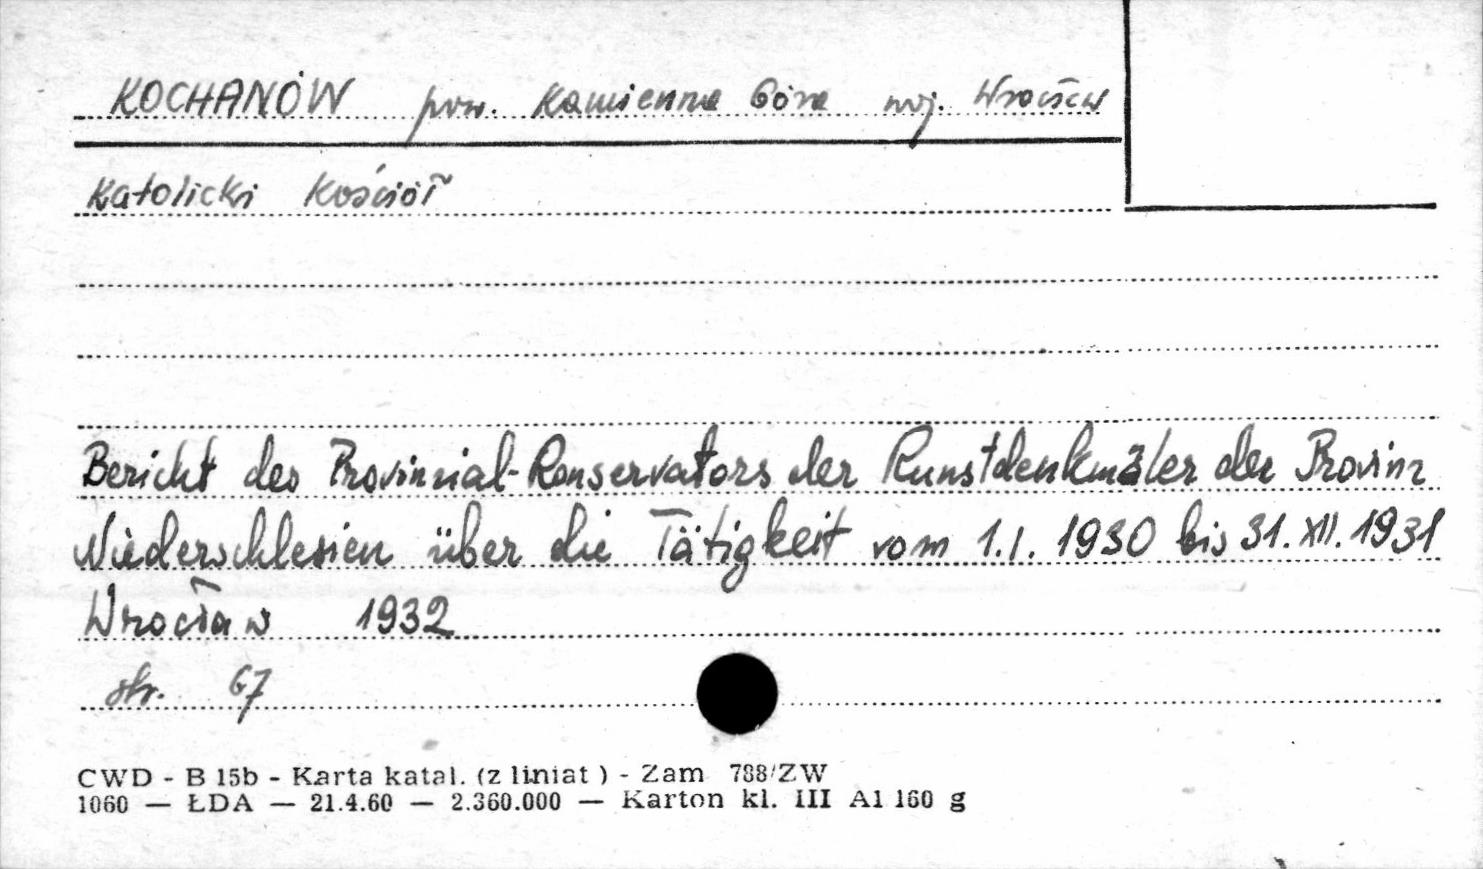 KOCHANÓW pow. Kamienna Góra woj. Wrocław
Katolicki Kościół
Bericht des Provinzial-Konservators der Kunstdenkmäler der Provinz
Niederschlesien über die Tätigkeit vom 1.I. 1930 bis 31.XII.1931
Wrocław 1932
str. 67
CWD - B 15b - Karta katal. (z liniat ) - Zam 788/ZW
1060 — ŁDA — 21.4.60 — 2.360.000 — Karton kl. III A1 160 g